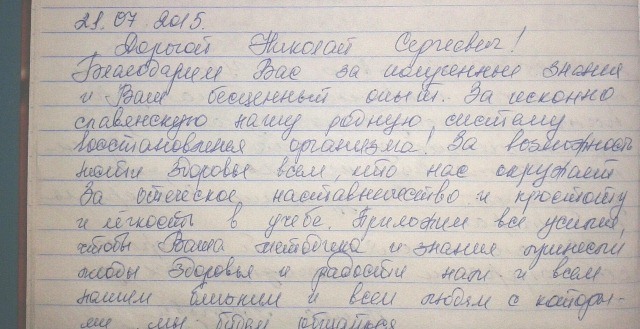 29.07.2015.
Дорогой Николай Сергеевич!
Благодарим Вас за полученные знания
и Ваш бесценный опыт. За исконно
славянскую нашу родную систему
восстановления организма! За возможность
нести здоровье всем, кто нас окружает
За отеческое наставничество и простоту
и лёгкость в учебе. Приложим все усилия,
чтобы Ваша методика и знания приносили
плоды здоровья и радости нам и всем
нашим ближним и всем людям с которы-
ми мы будем общаться